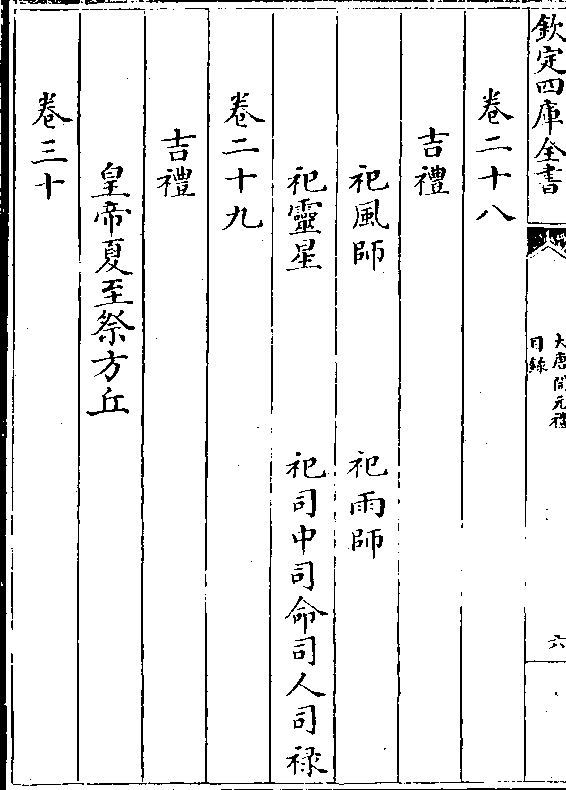 欽定四庫全書
大唐開元禮
目錄
六
卷二十八
吉禮
祀風師　祀雨師
祀靈星　祀司中司命司人司祿
卷二十九
吉禮
皇帝夏至祭方丘
卷三十